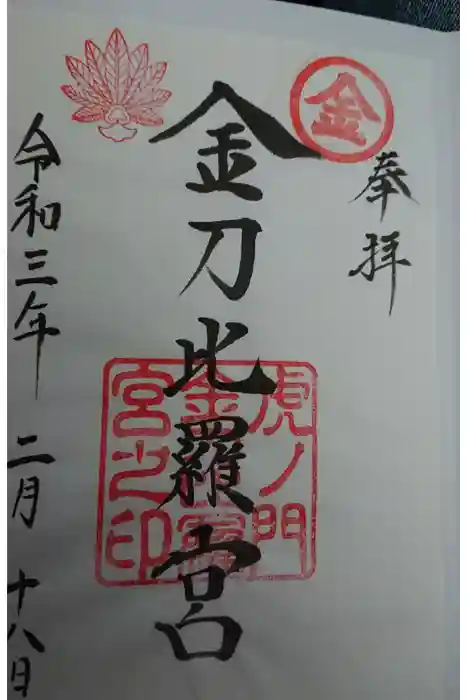 奉拝
金
金刀比羅宮
虎ノ門
金刀比羅
宮之印
令和三年 二月 十八日